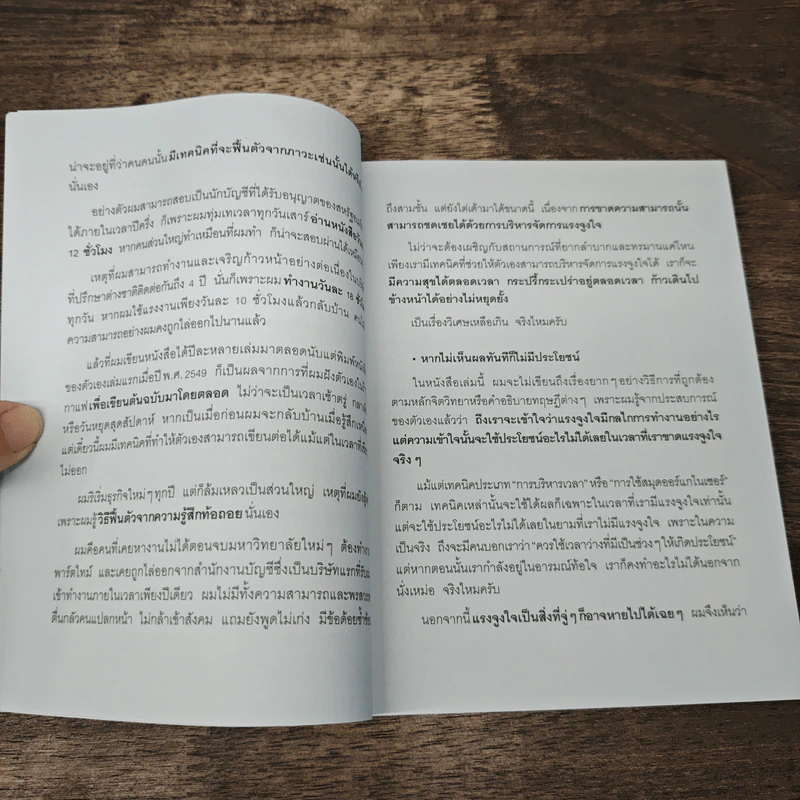 น่าจะอยู่ที่ว่าคนคนนั้นมีเทคนิคที่จะฟื้นตัวจากภาวะเช่นนั้นได้
นั่นเอง
อย่างตัวผมสามารถสอบเป็นนักบัญชีที่ได้รับอนุญาตของสหรัฐ
ได้ภายในเวลาปีครึ่ง ก็เพราะผมทุ่มเทเวลาทุกวันเสาร์ อ่านหนังสือวันละ
12 ชั่วโมง หากคนส่วนใหญ่ทำเหมือนที่ผมทำ ก็น่าจะสอบผ่านได้
เหตุที่ผมสามารถทำงานและเจริญก้าวหน้าอย่างต่อเนื่องใน
ที่ปรึกษาต่างชาติติดต่อกันถึง 4 ปี นั่นก็เพราะผม ทำงานวันละ 18
ทุกวัน หากผมใช้แรงงานเพียงวันละ 10 ชั่วโมงแล้วกลับบ้าน
ความสามารถอย่างผมคงถูกไล่ออกไปนานแล้ว
แล้วที่ผมเขียนหนังสือได้ปีละหลายเล่มมาตลอดนับแต่พิมพ์
ของตัวเองเล่มแรกเมื่อปี พ.ศ. 2549 ก็เป็นผลจากการที่ผมฝังตัวเองใน
กาแฟเพื่อเขียนต้นฉบับมาโดยตลอด ไม่ว่าจะเป็นเวลาเช้าตรู่
หรือวันหยุดสุดสัปดาห์ หากเป็นเมื่อก่อนผมจะกลับบ้านเมื่อรู้สึก
แต่เดี๋ยวนี้ผมมีเทคนิคที่ทำให้ตัวเองสามารถเขียนต่อได้แม้แต่ในเวลาที่
ไม่ออก
ผมริเริ่มธุรกิจใหม่ๆ ทุกปี แต่ก็ล้มเหลวเป็นส่วนใหญ่ เหตุที่ผมยัง
เพราะผมรู้ วิธีฟื้นตัวจากความรู้สึกท้อถอย นั่นเอง
ผมคือคนที่เคยหางานไม่ได้ตอนจบมหาวิทยาลัยใหม่ๆ ต้องทำ
พาร์ตไทม์ และเคยถูกไล่ออกจากสำนักงานบัญชีซึ่งเป็นบริษัทแรกที่รับ
เข้าทำงานภายในเวลาเพียงปีเดียว ผมไม่มีทั้งความสามารถและพรสวรรค์
ตื่นกลัวคนแปลกหน้า ไม่กล้าเข้าสังคม แถมยังพูดไม่เก่ง มีข้อด้อยซ้ำซ้อน
ถึงสามชั้น แต่ยังไต่เต้ามาได้ขนาดนี้ เนื่องจาก การขาดความสามารถนั้น
สามารถชดเชยได้ด้วยการบริหารจัดการแรงจูงใจ
ไม่ว่าจะต้องเผชิญกับสถานการณ์ที่ยากลำบากและทรมานแค่ไหน
เพียงเรามีเทคนิคที่ช่วยให้ตัวเองสามารถบริหารจัดการแรงจูงใจได้ เราก็จะ
มีความสุขได้ตลอดเวลา กระปรี้กระเปร่าอยู่ตลอดเวลา ก้าวเดินไป
ข้างหน้าได้อย่างไม่หยุดยั้ง
เป็นเรื่องวิเศษเหลือเกิน จริงไหมครับ
• หากไม่เห็นผลทันทีก็ไม่มีประโยชน์
ในหนังสือเล่มนี้ ผมจะไม่เขียนถึงเรื่องยากๆ อย่างวิธีการที่ถูกต้อง
ตามหลักจิตวิทยาหรือคำอธิบายทฤษฎีต่างๆ เพราะผมรู้จากประสบการณ์
ของตัวเองแล้วว่า ถึงเราจะเข้าใจว่าแรงจูงใจมีกลไกการทำงานอย่างไร
แต่ความเข้าใจนั้นจะใช้ประโยชน์อะไรไม่ได้เลยในเวลาที่เราขาดแรงจูงใจ
จริงๆ
แม้แต่เทคนิคประเภท "การบริหารเวลา" หรือ "การใช้สมุดออร์แกไนเซอร์"
ก็ตาม เทคนิคเหล่านั้นจะใช้ได้ผลก็เฉพาะในเวลาที่เรามีแรงจูงใจเท่านั้น
แต่จะใช้ประโยชน์อะไรไม่ได้เลยในยามที่เราไม่มีแรงจูงใจ เพราะในความ
เป็นจริง ถึงจะมีคนบอกเราว่า "ควรใช้เวลาว่างที่มีเป็นช่วงๆ ให้เกิดประโยชน์"
แต่หากตอนนั้นเรากำลังอยู่ในอารมณ์ท้อใจ เราก็คงทำอะไรไม่ได้นอกจาก
นั่งเหม่อ จริงไหมครับ
นอกจากนี้ แรงจูงใจเป็นสิ่งที่จู่ๆ ก็อาจหายไปได้เฉยๆ ผมจึงเห็นว่า